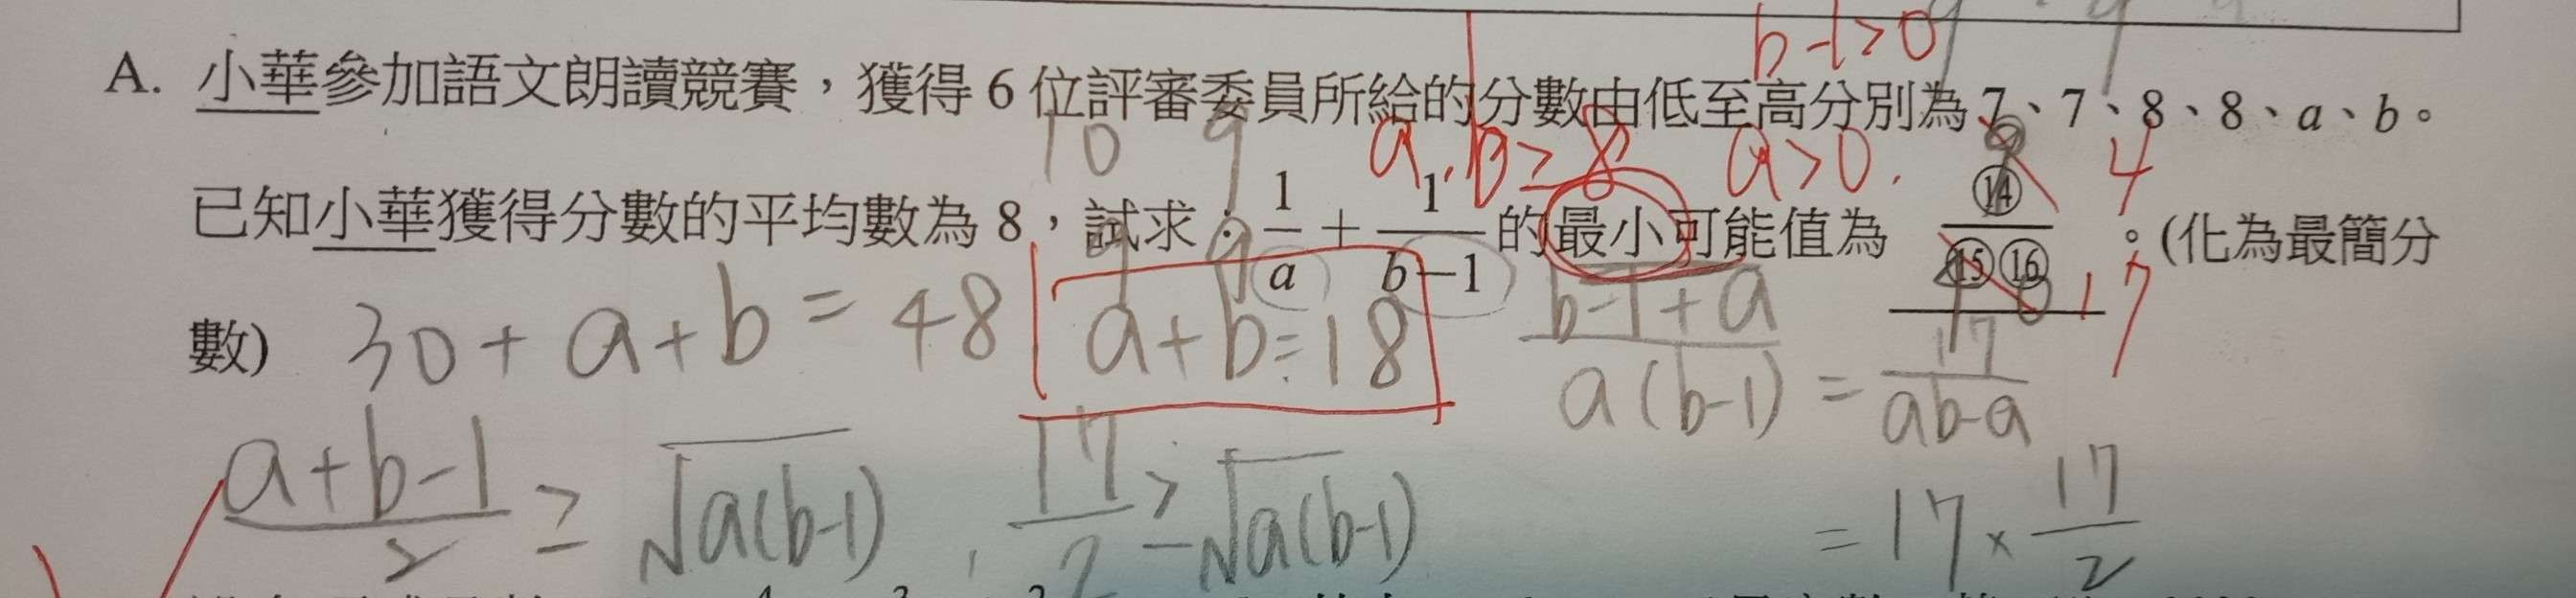 b-1>0
A. 小華參加語文朗讀競賽，獲得 6 位評審委員所給的分數由低至高分別為 7、7、8、8、a、b。
10 9 a, b ≥ 8 a>0. 4
已知小華獲得分數的平均數為 8，試求：1/a + 1/(b−1) 的最小可能值為 ⑭/⑮⑯。(化為最簡分
17
數) 30+a+b=48 a+b=18 (b-1+a)/(a(b-1)) = 17/(ab-a)
(a+b-1)/2 ≥ √(a(b-1)) , 17/2 ≥ √(a(b-1)) = 17 × 17/2